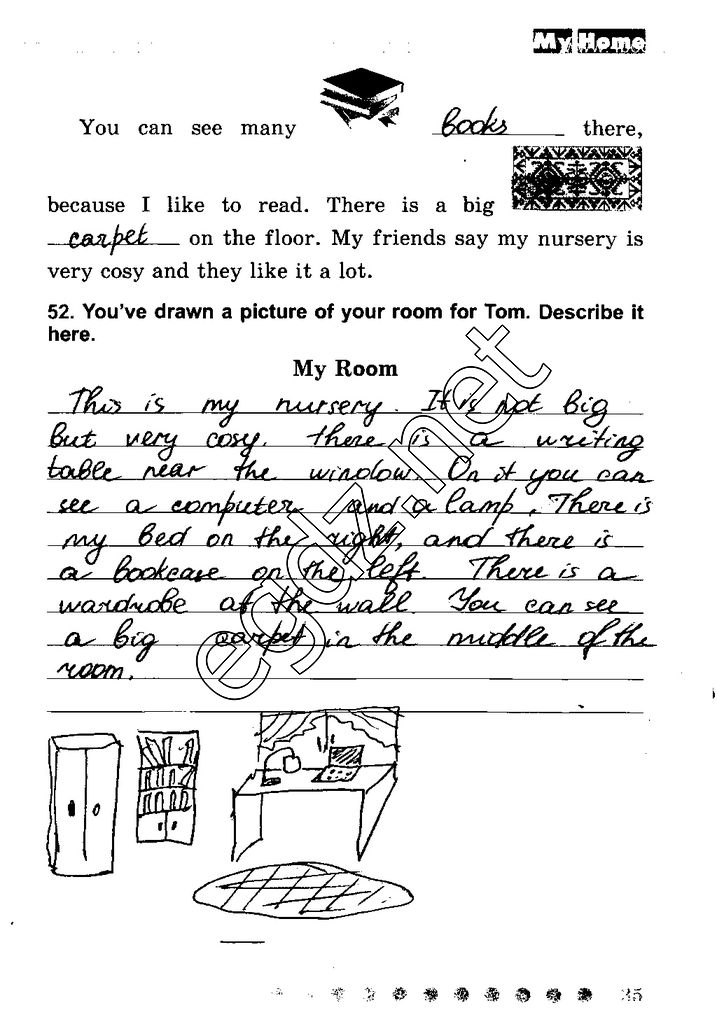 My Home
You can see many books there,
because I like to read. There is a big
carpet on the floor. My friends say my nursery is
very cosy and they like it a lot.
52. You've drawn a picture of your room for Tom. Describe it
here.
My Room
This is my nursery. It is not big
but very cosy. There is a writing
table near the window. On it you can
see a computer and a lamp. There is
my bed on the right, and there is
a bookcase on the left. There is a
wardrobe at the wall. You can see
a big carpet in the middle of the
room.
egdz.net
35